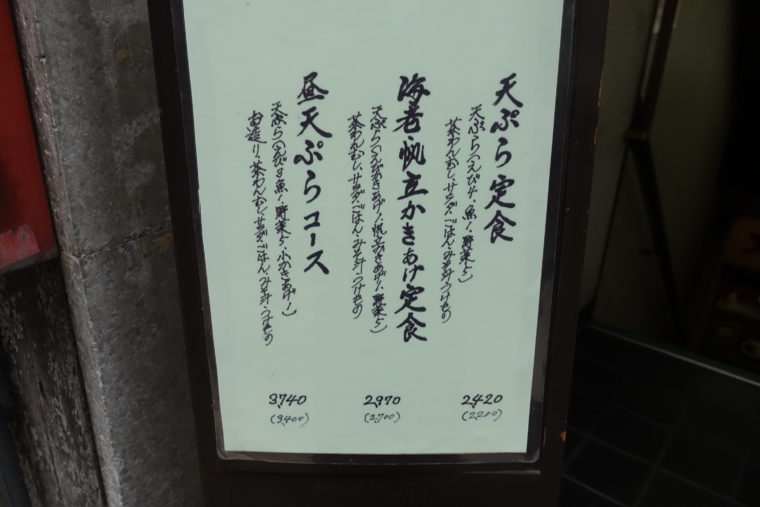 天ぷら定食
天ぷら(えび4、魚1、野菜5)
茶わんむし、サラダ、ごはん、みそ汁、つけもの
2420
(2200)
海老・帆立かきあげ定食
天ぷら(えびかきあげ1、帆立かきあげ1、野菜5)
茶わんむし、サラダ、ごはん、みそ汁、つけもの
2970
(2700)
昼天ぷらコース
天ぷら(えび3、魚1、野菜5、小かきあげ1)
お造り、茶わんむし、サラダ、ごはん、みそ汁、つけもの
3740
(3400)